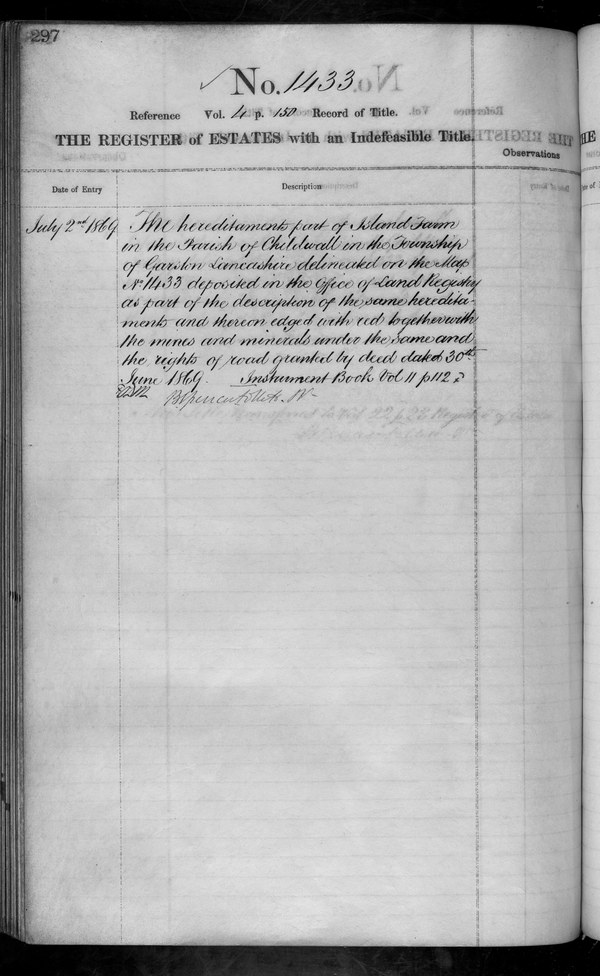 297
No. 1433
Reference Vol. 4 p. 150 Record of Title.
THE REGISTER of ESTATES with an Indefeasible Title.
Observations
Date of Entry
Description
July 2nd 1869
The hereditaments part of Island Farm
in the Parish of Childwall in the Township
of Garston Lancashire delineated on the Map
No 1433 deposited in the Office of Land Registry
as part of the description of the same heredita-
ments and thereon edged with red together with
the mines and minerals under the same and
the rights of road granted by deed dated 30th
June 1869. Instrument Book Vol 11 p 112
THE